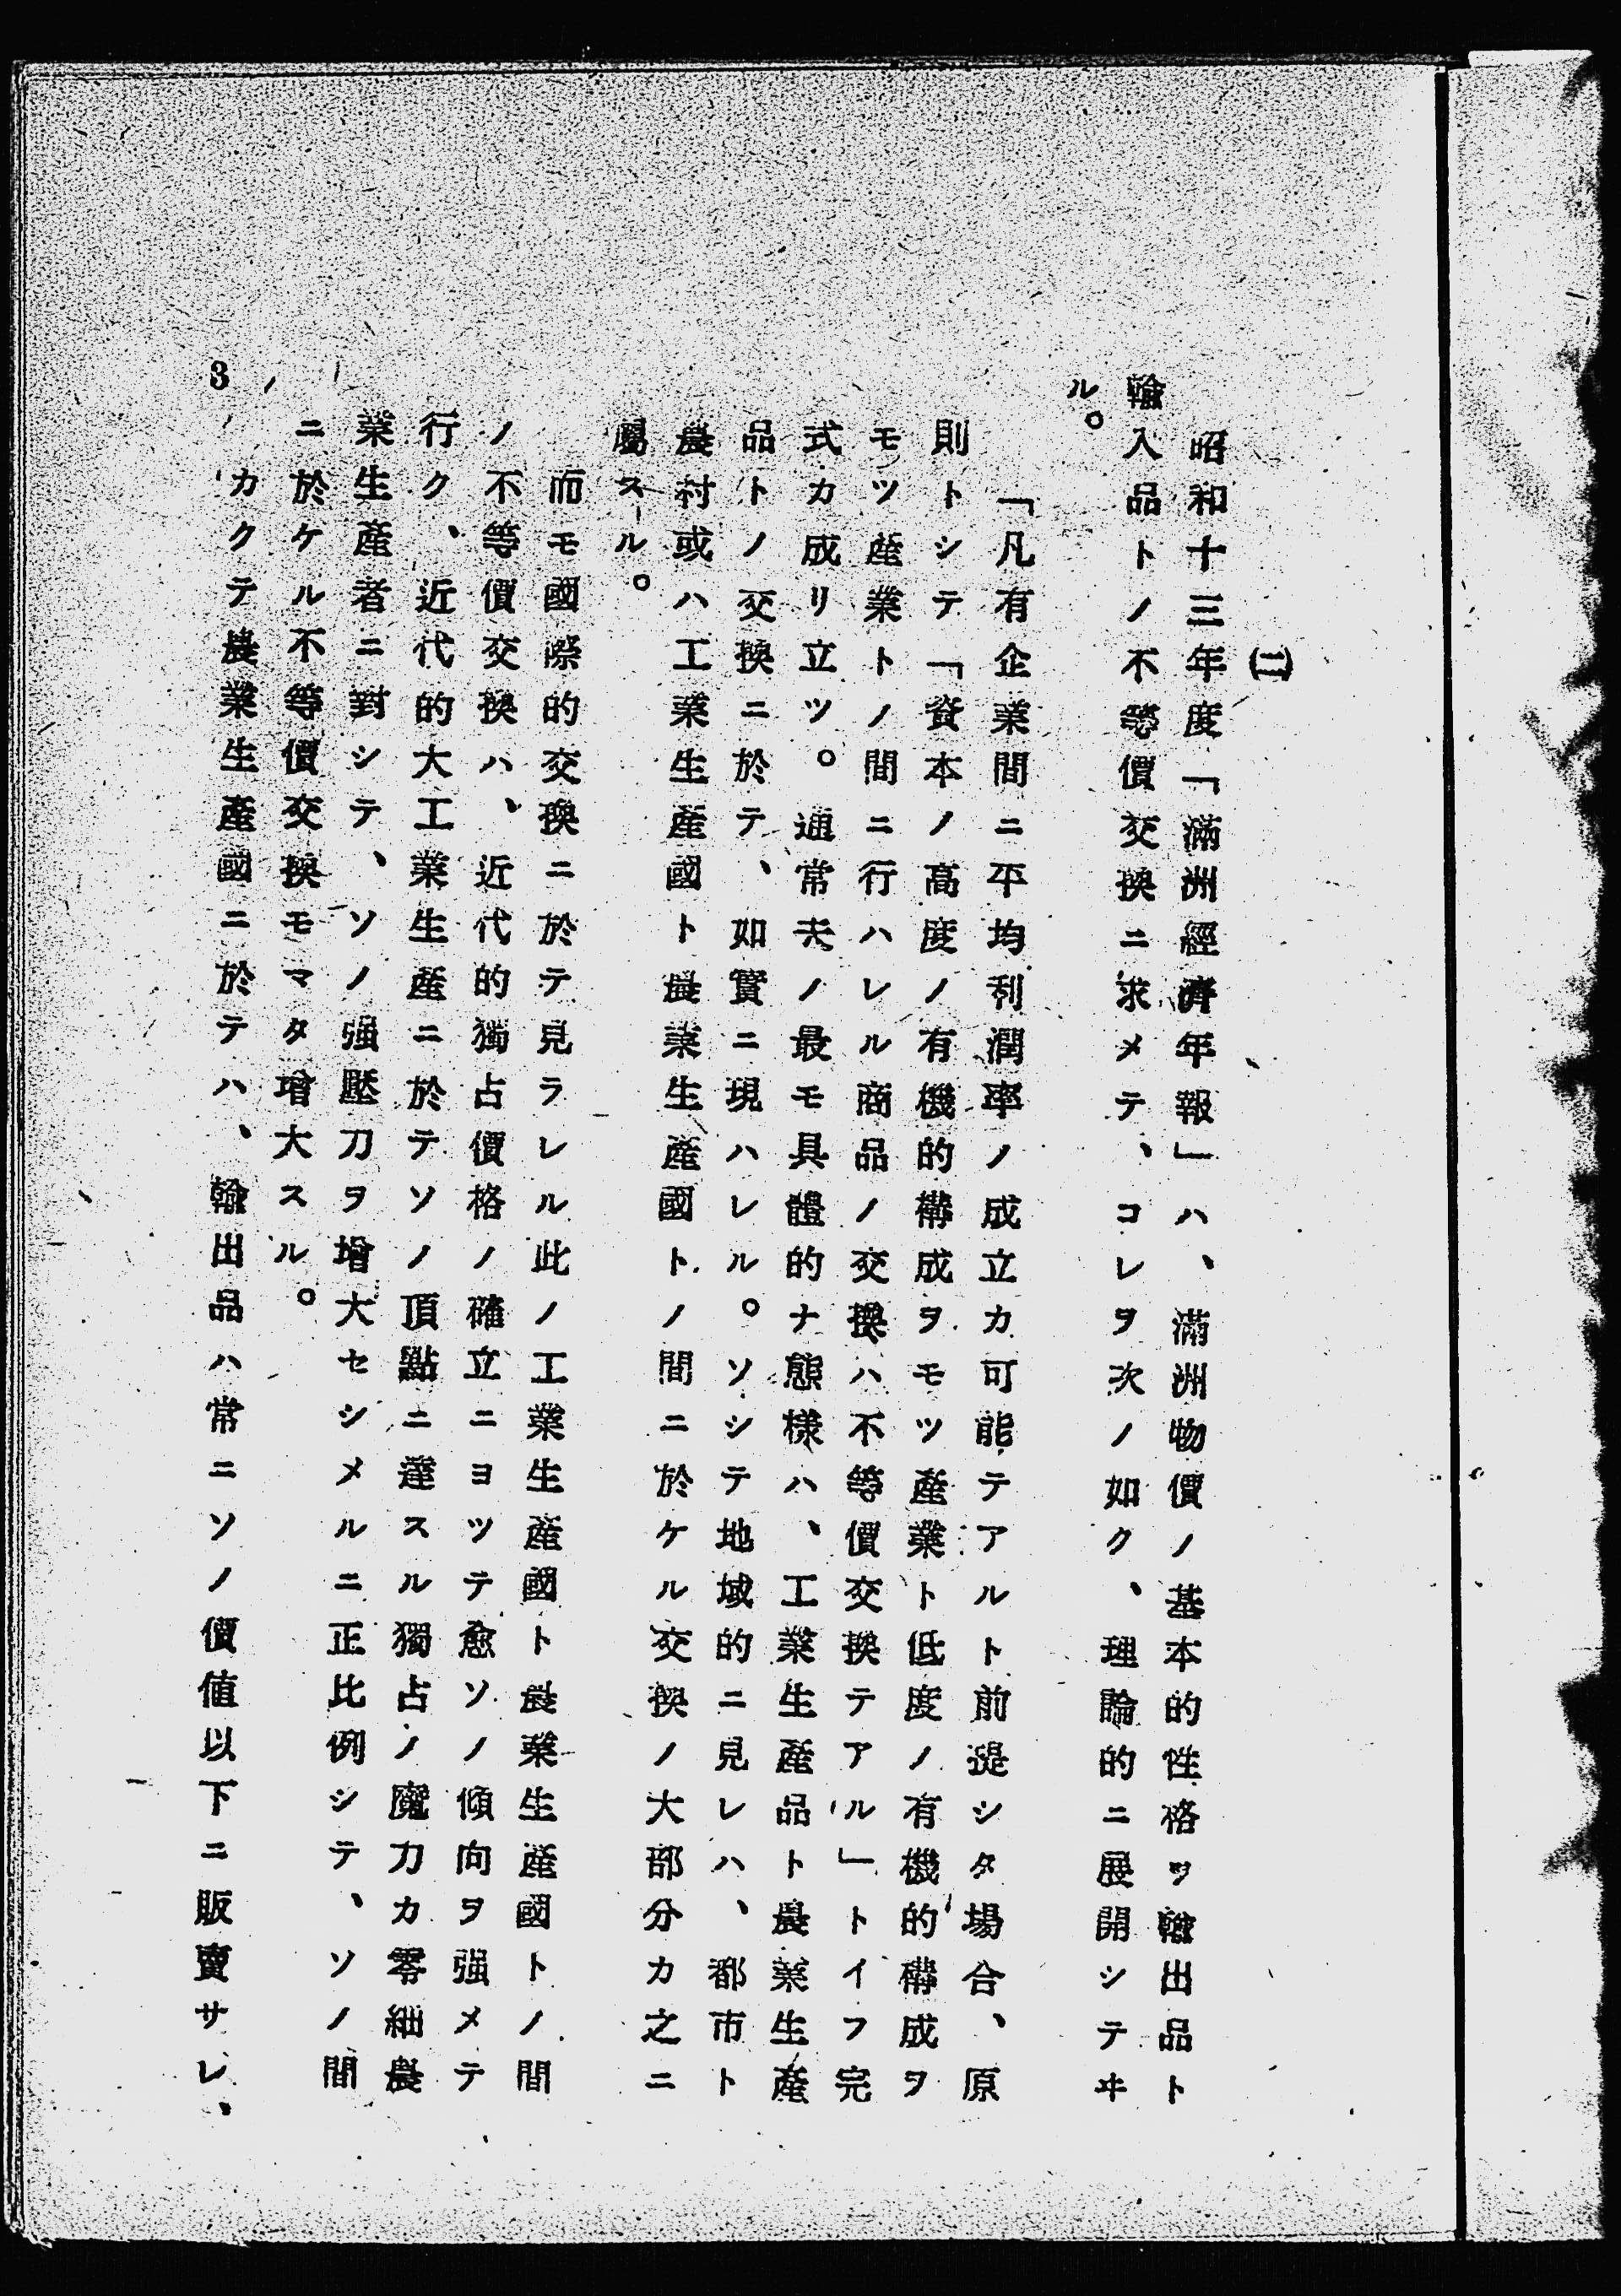 (二)
昭和十三年度「滿洲經濟年報」ハ、滿洲物價ノ基本的性格ヲ輸出品ト
輸入品トノ不等價交換ニ求メテ、コレヲ次ノ如ク、理論的ニ展開シテヰ
ル。
「凡有企業間ニ平均利潤率ノ成立カ可能テアルト前提シタ場合、原
則トシテ「資本ノ高度ノ有機的構成ヲモツ產業ト低度ノ有機的構成ヲ
モツ產業トノ間ニ行ハレル商品ノ交換ハ不等價交換テアル」トイフ完
式カ成リ立ツ。通常夫ノ最モ具體的ナ態樣ハ、工業生產品ト農業生產
品トノ交換ニ於テ、如實ニ現ハレル。ソシテ地域的ニ見レハ、都市ト
農村或ハ工業生產國ト農業生產國トノ間ニ於ケル交換ノ大部分カ之ニ
屬スル。
而モ國際的交換ニ於テ見ラレル此ノ工業生產國ト農業生產國トノ間
ノ不等價交換ハ、近代的獨占價格ノ確立ニヨツテ愈ソノ傾向ヲ强メテ
行ク、近代的大工業生產ニ於テソノ頂點ニ達スル獨占ノ魔力カ零細農
業生產者ニ對シテ、ソノ强壓力ヲ增大セシメルニ正比例シテ、ソノ間
ニ於ケル不等價交換モマタ增大スル。
カクテ農業生產國ニ於テハ、輸出品ハ常ニソノ價值以下ニ販賣サレ、
3